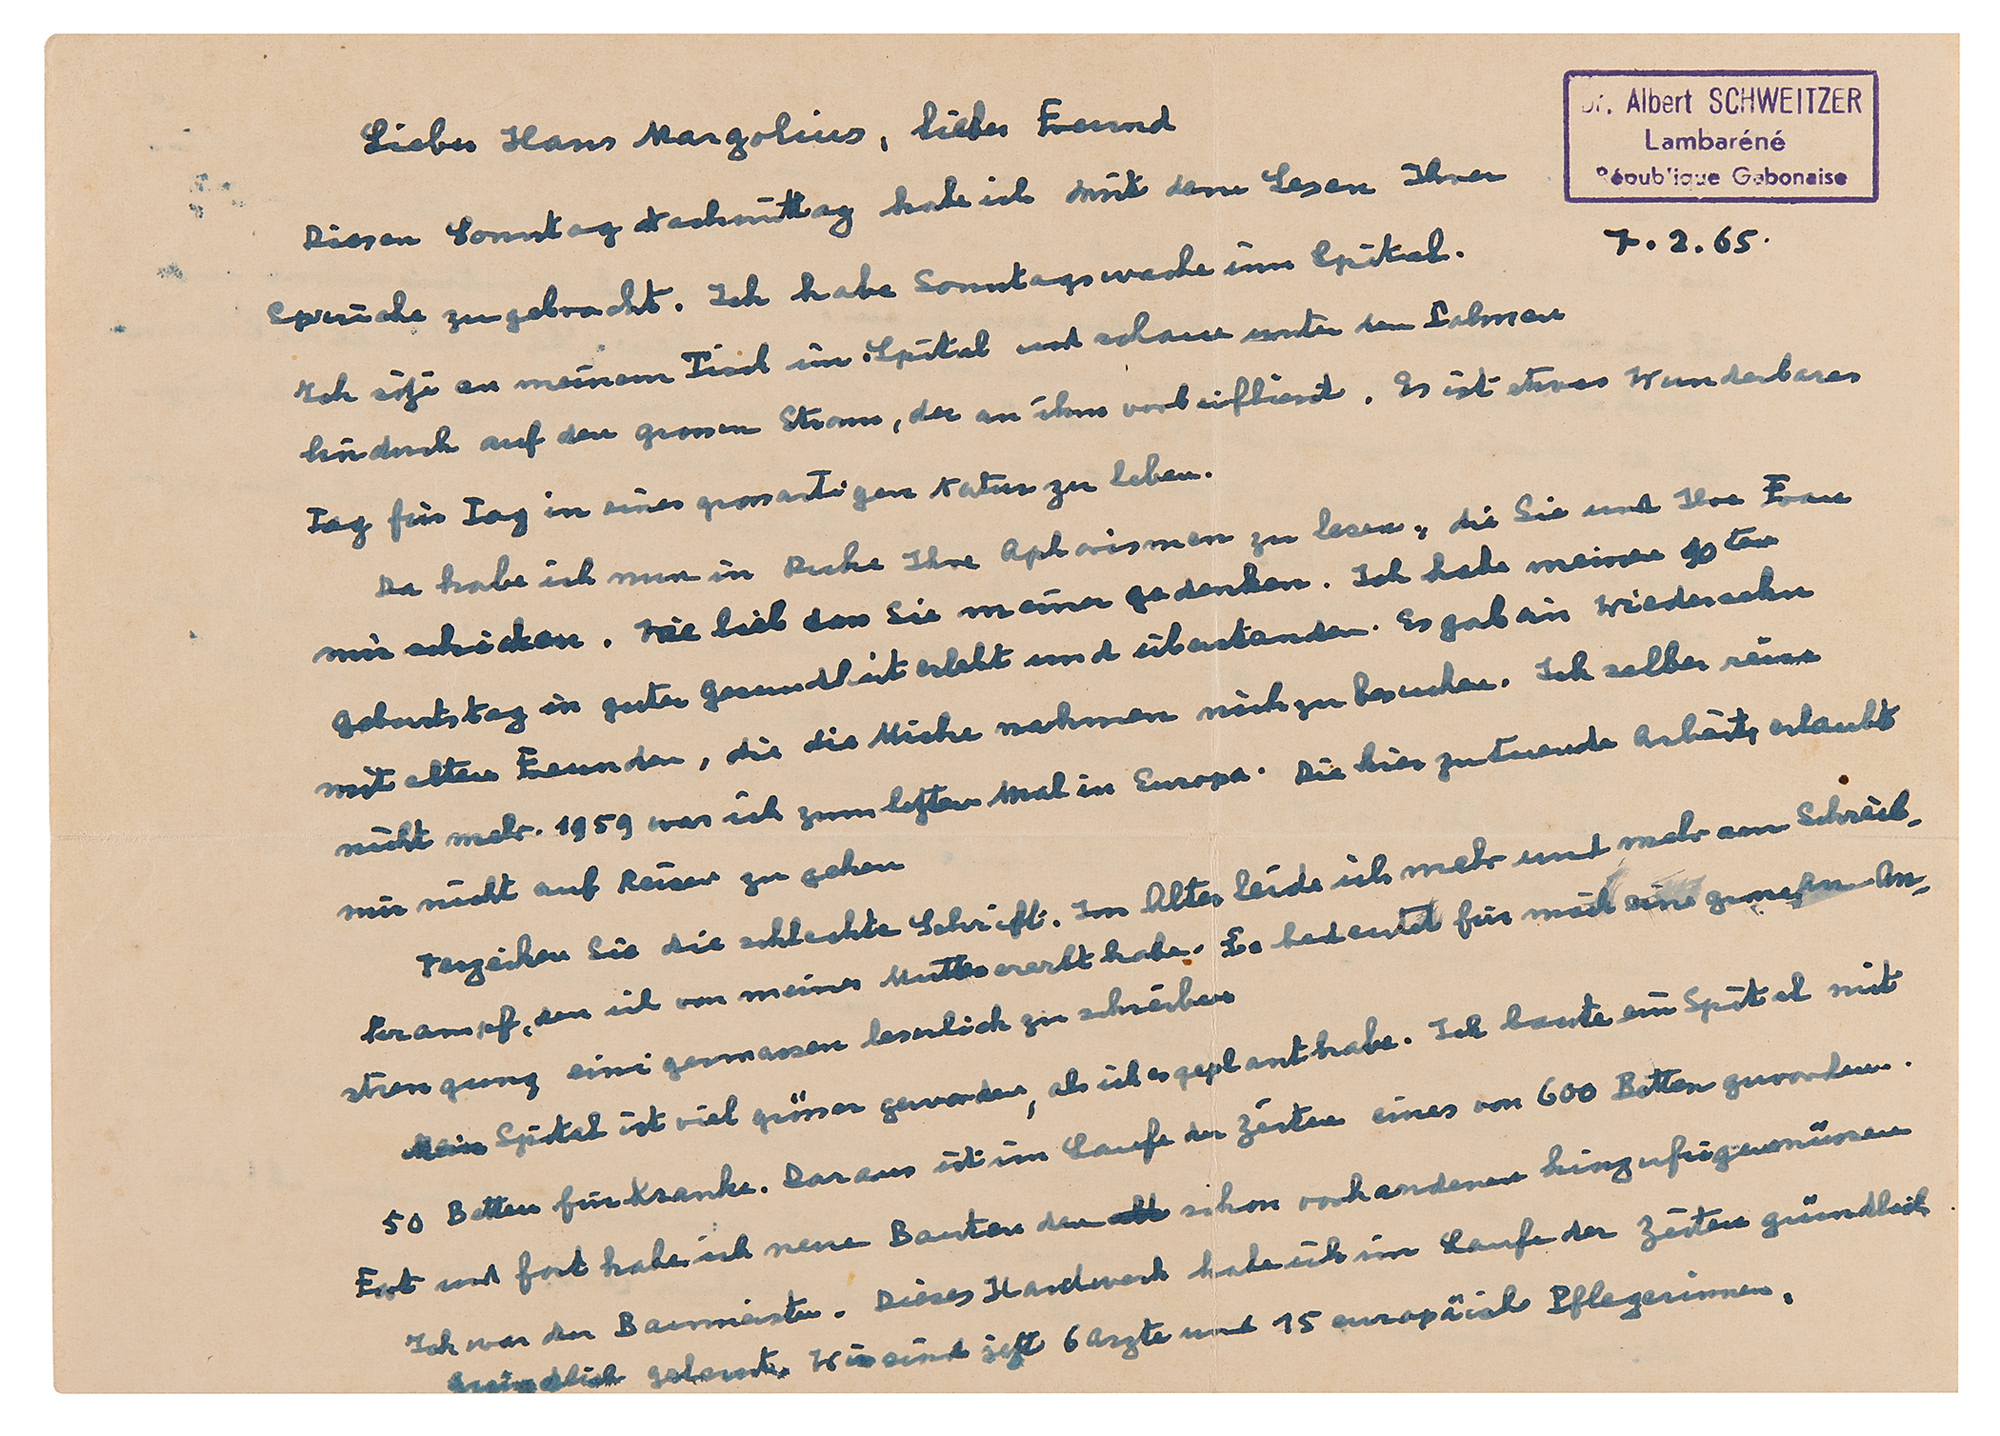 Dr. Albert SCHWEITZER
Lambaréné
République Gabonaise
7.2.65.
Lieber Hans Margolius, lieber Freund
Diesen Sonntag Nachmittag habe ich mit dem Lesen Ihrer
Sprüche zugebracht. Ich habe Sonntagswache im Spital.
Ich sitze an meinem Tisch im Spital und schaue unter den Palmen
hindurch auf den grossen Strom, der an ihm vorbeifliesst. Es ist etwas Wunderbares
Tag für Tag in einer grossartigen Natur zu leben.
Da habe ich nun in Ruhe Ihre Aphorismen zu lesen, die Sie und Ihre Frau
mir schicken. Wie lieb dass Sie meiner gedenken. Ich habe meinen 90ten
Geburtstag in guter Gesundheit erlebt und überstanden. Es gab ein Wiedersehn
mit alten Freunden, die die Mühe nahmen mich zu besuchen. Ich selber reise
nicht mehr. 1959 war ich zum letzten Mal in Europa. Die hier zu tuende Arbeit, erlaubt
mir nicht auf Reisen zu gehen
Verzeihen Sie die schlechte Schrift. Im Alter leide ich mehr und mehr am Schreib-
krampf, den ich von meiner Mutter ererbt habe. Es bedeutet für mich eine An-
strengung einigermassen leserlich zu schreiben
Mein Spital ist viel grösser geworden, als ich es geplant habe. Ich baute ein Spital mit
50 Betten für Kranke. Daraus ist im Laufe der Zeiten eines von 600 Betten geworden.
Fort und fort habe ich neue Bauten den schon vorhandenen hinzufügen müssen
Ich war der Baumeister. Dieses Handwerk habe ich im Laufe der Zeiten gründlich
gründlich gelernt. Wir sind jetzt 6 Arzte und 15 europäische Pflegerinnen.